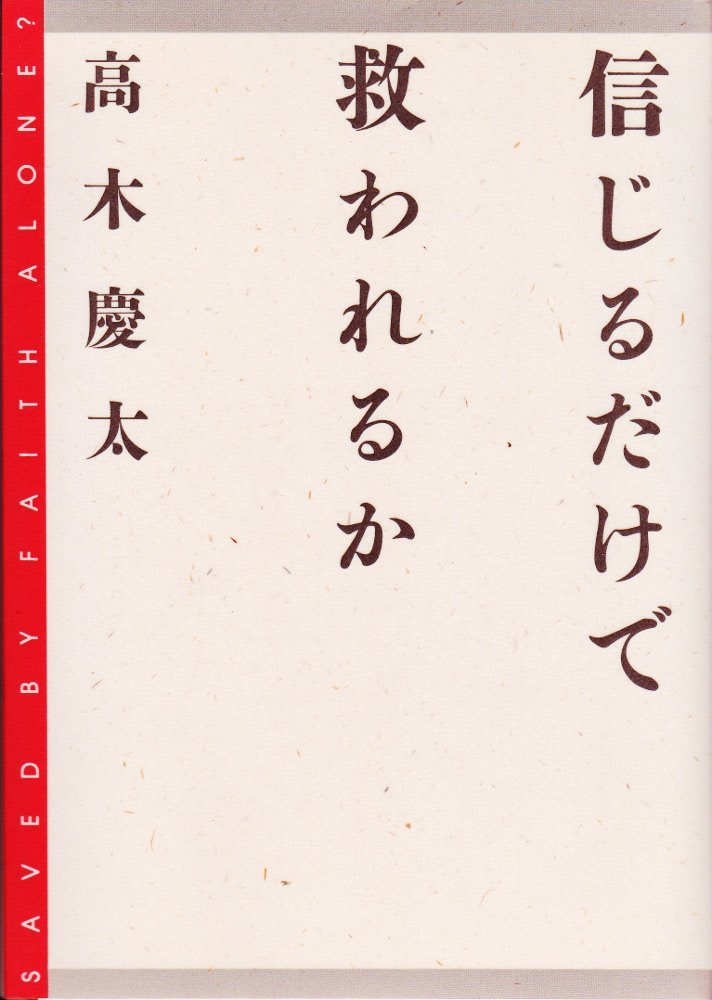 信じるだけで
救われるか
高木慶太
SAVED BY FAITH ALONE?